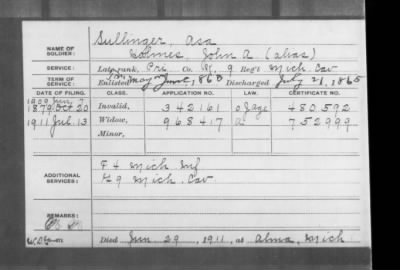 Sullinger, Asa
NAME OF SOLDIER: Holmes, John A. (alias)
SERVICE: Late rank, Pri Co. 9 Reg't Mich Cav
TERM OF SERVICE: Enlisted May June, 1863 Discharged July 21, 1865
DATE OF FILING. CLASS. APPLICATION NO. LAW. CERTIFICATE NO.
1879 Oct 20 Invalid, 342161 480592
1911 Jul 13 Widow, 968417 752999
Minor,
F 4 Mich Inf
ADDITIONAL SERVICES: 9 Mich. Cav
REMARKS:
Died Jun 29, 1911, at Alma, Mich